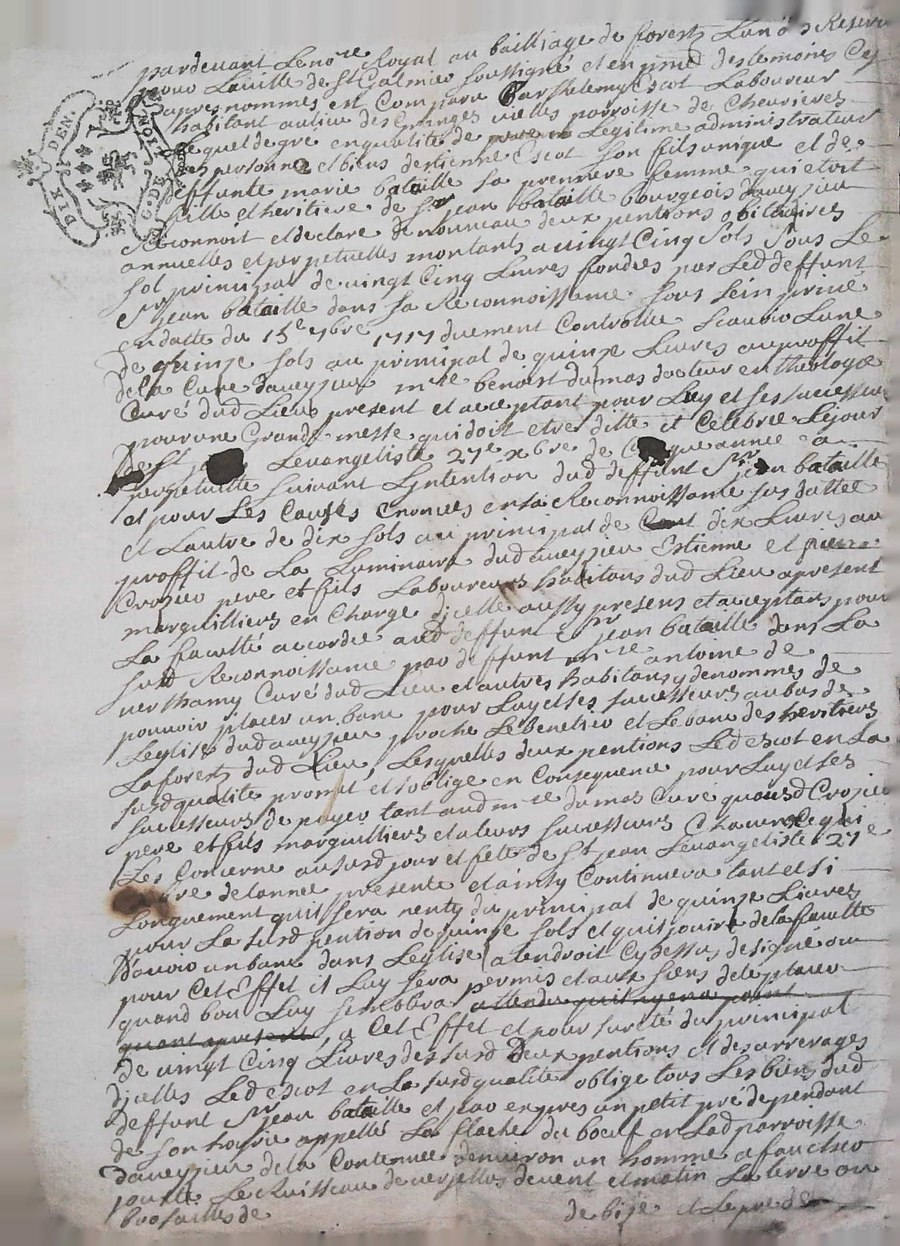 DIX DEN.
G. DE LION
pardevant Le no.re Royal au bailliage de forests Lun des Reservé
pour La ville de St Galmier soussigné et en pnce des temoins Cy
apres nommés est Comparu Barthelemy Escot Laboureur
habitant au lieu des Granges parroisse de Chevrieres
Lequel de gre en qualité de pere et Legitime administrateur
des personne et biens detienne Escot son fils unique et de
deffunte marie bataille sa premiere femme qui etoit
fille et heritiere de sr jean bataille bourgeois daveyzieu
Reconnoit et declare de nouveau deux pentions obituaires
annuelles et perpetuelles montants a vingt Cinq Sols Sous Le
sol principal de vingt Cinq Livres fondées par Led deffunt
Sr jean bataille dans sa Reconnoissance sous sein privé
en datte du 15e 1717 duement Controllée Scavoir Lune
de quinze sols au principal de quinze Livres au proffit
de la Cure daveyzieu mre benoist dumas docteur en theologie
Curé dud Lieu present et acceptant pour Luy et ses successeurs
pour une Grande messe qui doit etre ditte et Celebrée Le jour
de St Levangeliste 27e xbre de année a
perpetuité suivant Lintention dud deffunt Sr jean bataille
et pour Les Causes enoncées en sa Reconnoissance sus dattée
et Lautre de dix sols au principal de dix Livres au
proffit de La Luminaire dud aveyzieu Estienne et
Crozier pere et fils Laboureurs habitans dud Lieu apresent
marguilliers en Charge dicelle aussy presens et acceptans pour
La faculté accordée aud deffunt Sr jean bataille dans La
susd Reconnoissance par deffunt mre antoine de
verthamy Curé dud Lieu et autres habitans y denommés de
pouvoir placer un banc pour Luy et ses successeurs au bas de
Leglise dud aveyzieu proche Le benetier et Le banc des heritiers
Laforest dud Lieu, Lesquelles deux pentions Led escot en La
susd qualité promet et soblige en Consequence pour Luy et ses
successeurs de payer tant aud mre dumas Curé quausd Crozier
pere et fils marguilliers et a leurs successeurs Chacun Ce qui
Les Concerne au susd jour et fete de St jean Levangeliste 27e
de Lannée presente et ainsy Continuera tant et si
Longuement quil sera nenty du principal de quinze Livres
pour La susd pention de quinze sols et quil jouira de la faculté
Davoir un banc dans Leglise a lendroit Cy dessus designé ou
pour Cet Effet il Luy sera permis et aux siens de le placer
quand bon Luy semblera attendu quil ny en a point
quant apresent, a Cet Effet et pour sureté du principal
de vingt Cinq Livres des susd Deux pentions et des arrerages
dicelles Led escot en La susd qualité oblige tous Les biens dud
deffunt Sr jean bataille et par expres un petit pré dependant
de son hoirie appellé La flache du boeuf en Lad parroisse
daveyzieu de la Contenue denviron un homme a faucher
jouxte Le Ruisseau de vent et matin La terre ou
brosailles de de bize et Le pré de